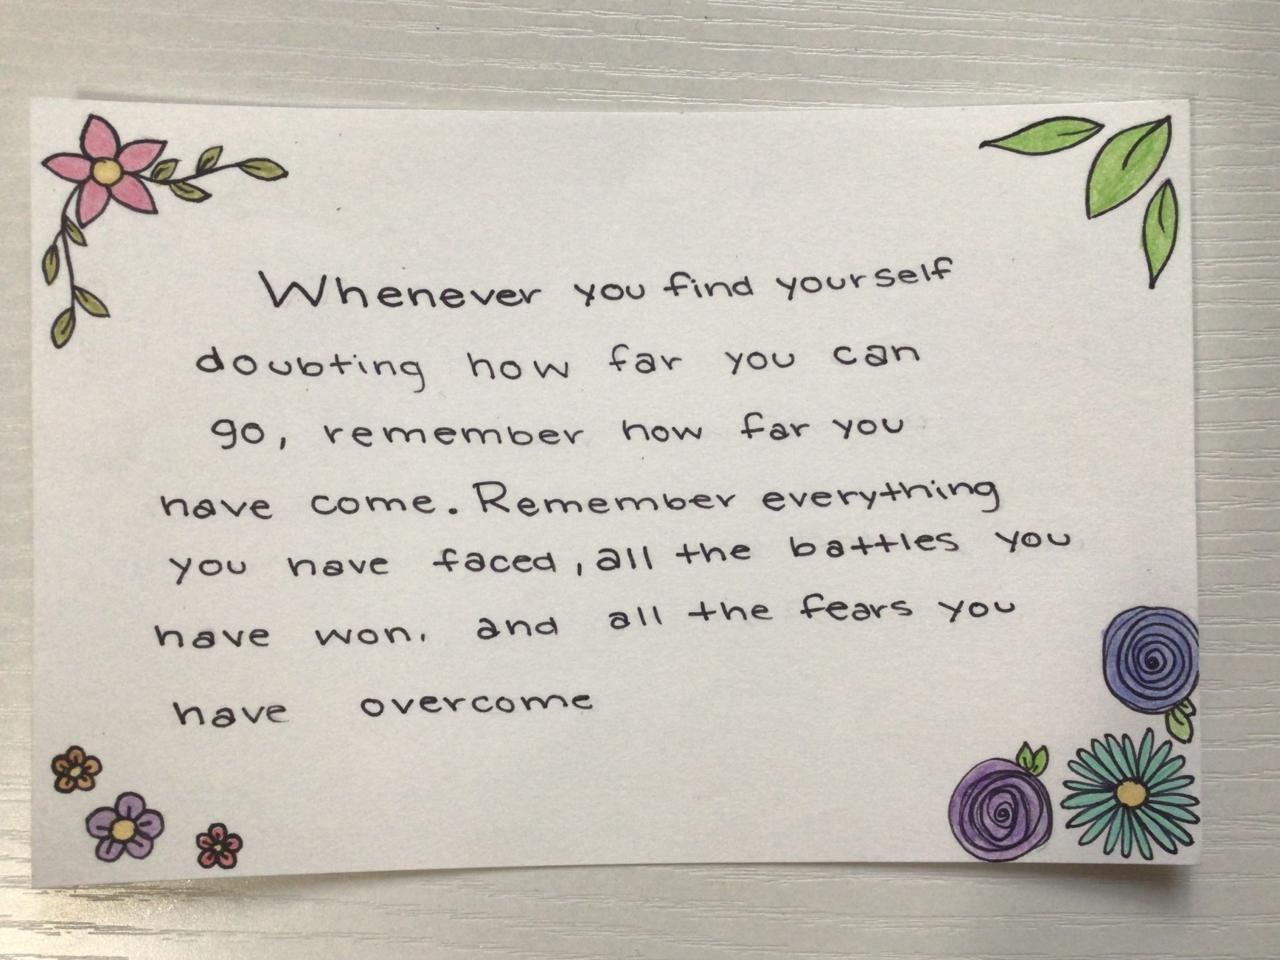 Whenever you find yourself
doubting how far you can
go, remember how far you
have come. Remember everything
you have faced, all the battles you
have won, and all the fears you
have overcome